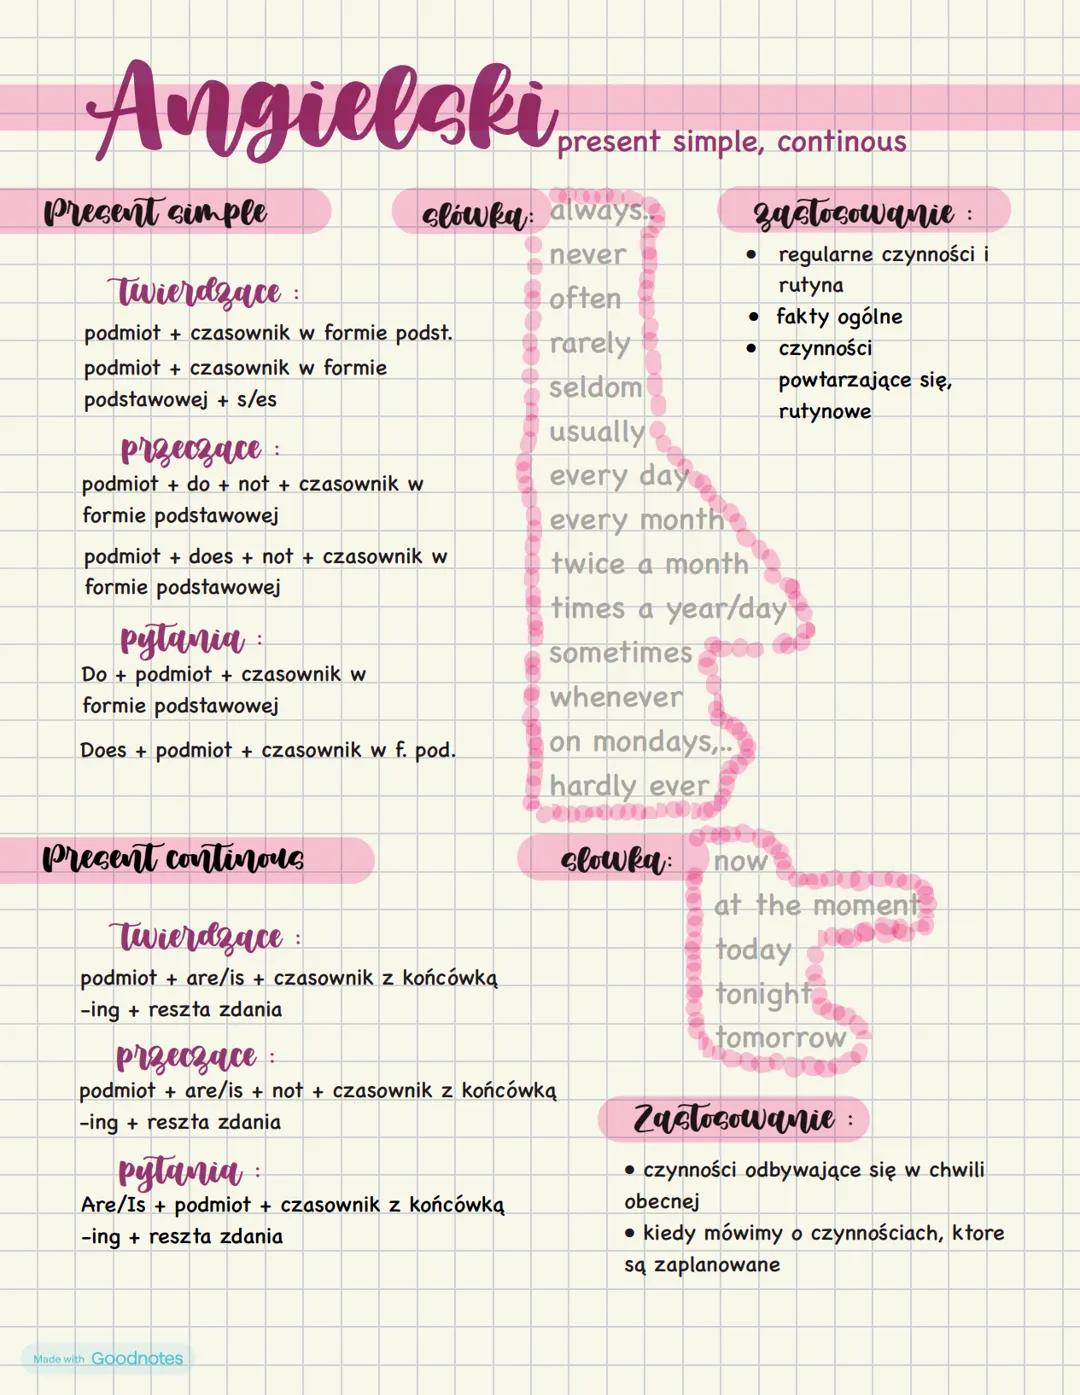 Angielski
present simple, continous
Present simple
twierdzące :
podmiot + czasownik w formie podst.
podmiot + czasownik w formie
podstawowej + s/es
przeczące :
podmiot + do + not + czasownik w
formie podstawowej
podmiot + does + not + czasownik w
formie podstawowej
pytania :
Do + podmiot + czasownik w
formie podstawowej
Does + podmiot + czasownik w f. pod.
słówka:
always..
never
often
rarely
seldom
usually
every day
every month
twice a month
times a year/day
sometimes
whenever
on mondays,..
hardly ever
zastosowanie :
• regularne czynności i
rutyna
• fakty ogólne
• czynności
powtarzające się,
rutynowe
Present continous
twierdzące :
podmiot + are/is + czasownik z końcówką
-ing + reszta zdania
przeczące :
podmiot + are/is + not + czasownik z końcówką
-ing + reszta zdania
pytania :
Are/Is + podmiot + czasownik z końcówką
-ing + reszta zdania
słowka:
now
at the moment
today
tonight
tomorrow
Zastosowanie :
• czynności odbywające się w chwili
obecnej
• kiedy mówimy o czynnościach, ktore
są zaplanowane
Made with Goodnotes